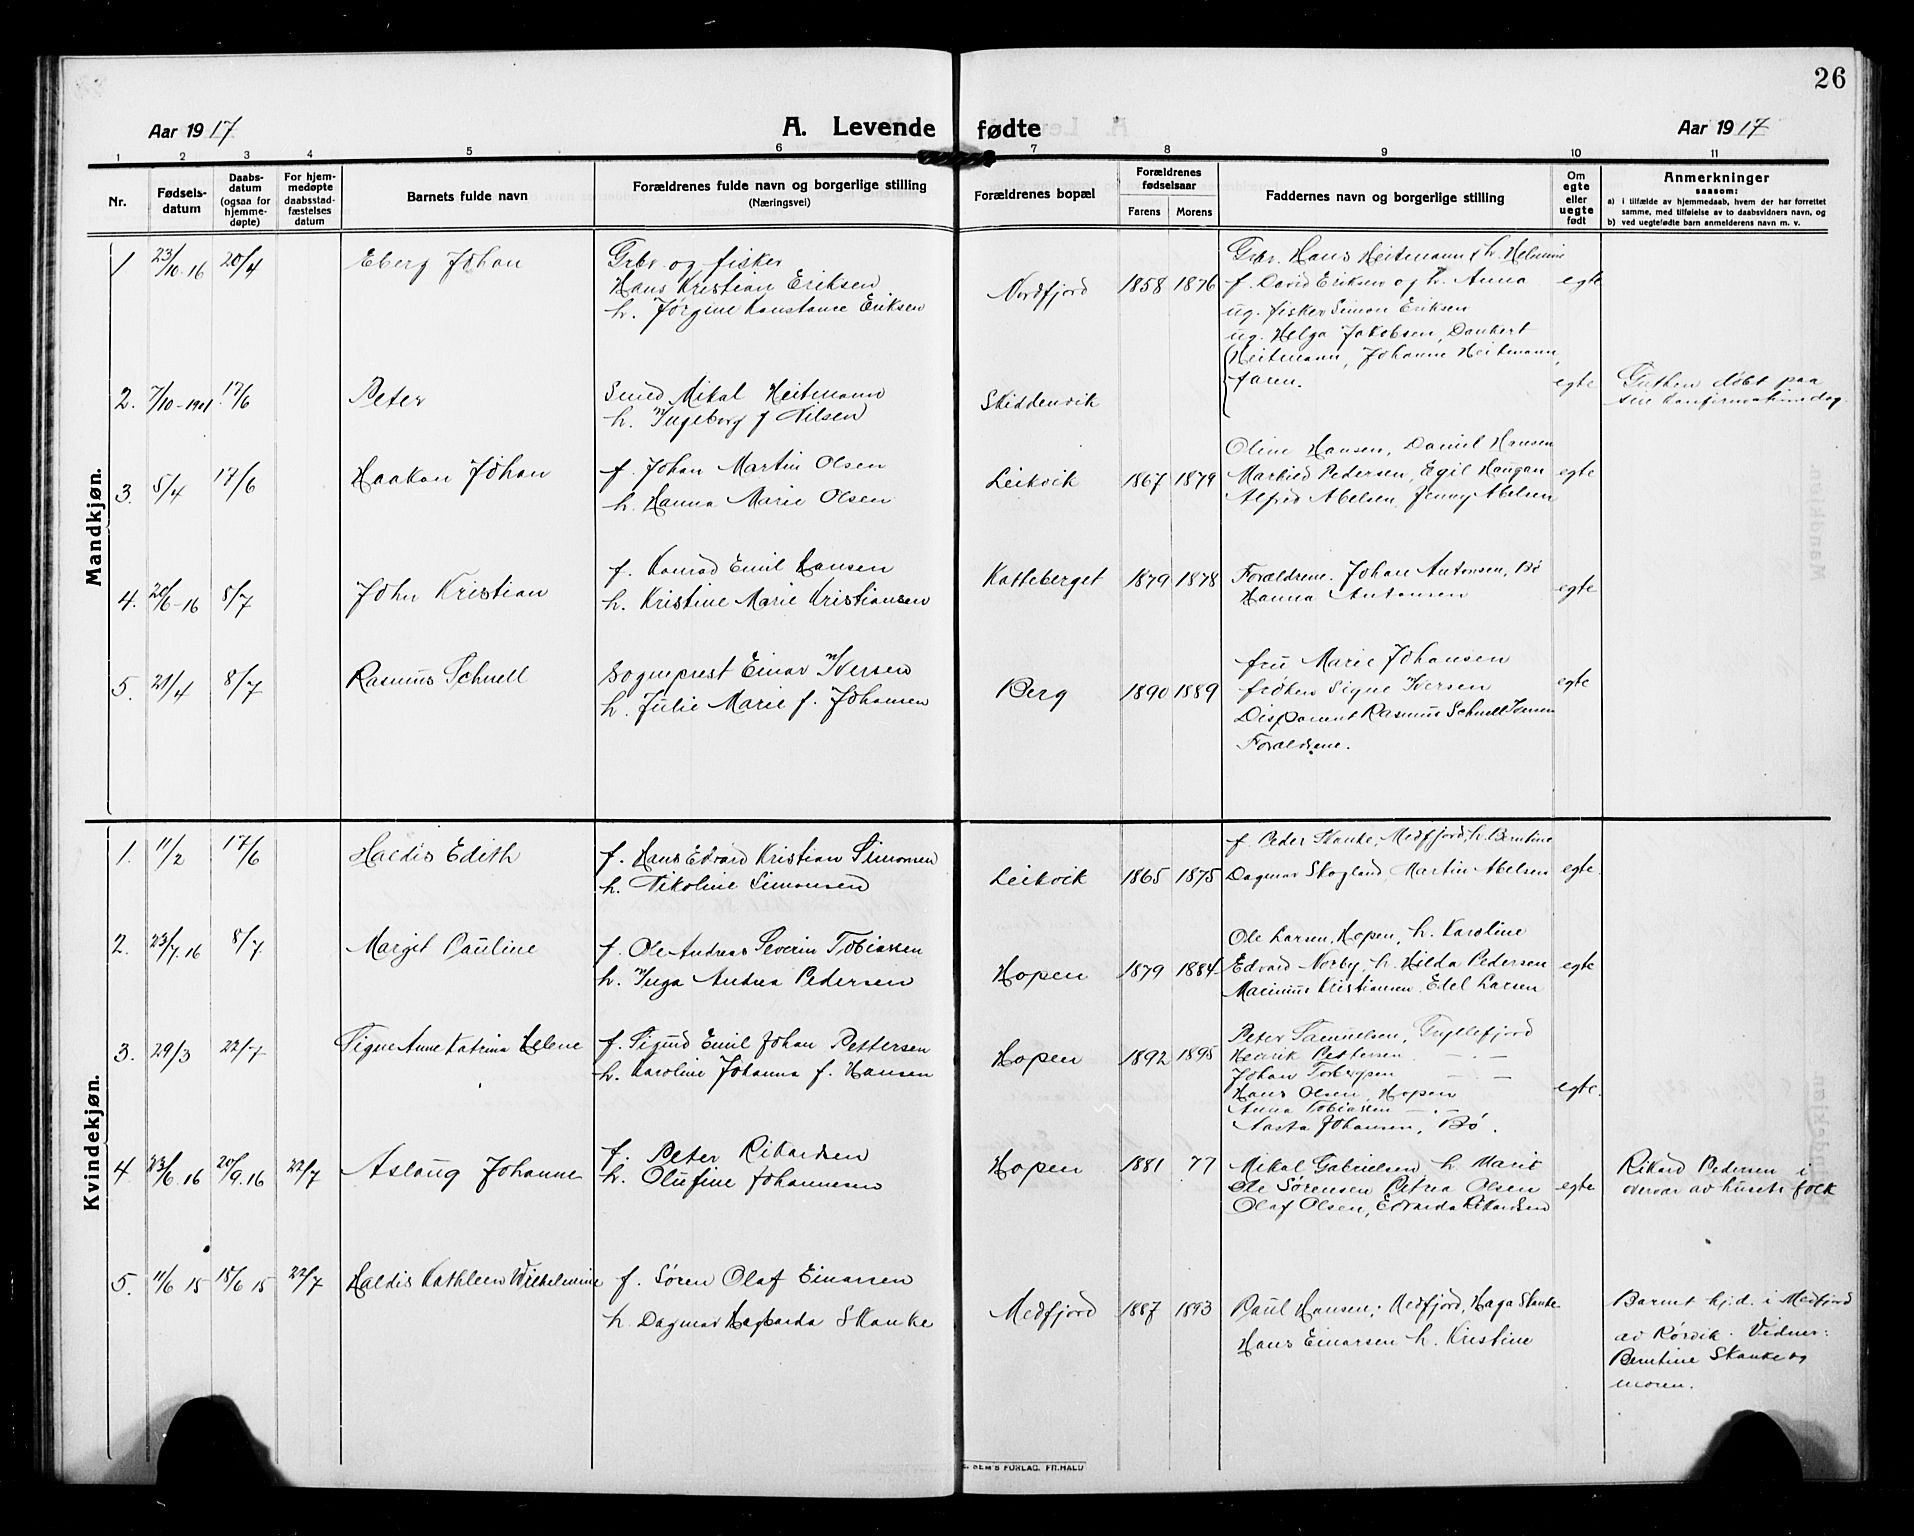 26
Aar 1917
A. Levende fødte
Aar 1917
1 2 3 4 5 6 7 8 9 10 11
Nr.
Fødsels-
datum
Daabs-
datum
(ogsaa for
hjemme-
døpte)
For hjem-
medøpte
daabsstad-
fæstelses
datum
Barnets fulde navn
Forældrenes fulde navn og borgerlige stilling
(Næringsvei)
Forældrenes bopæl
Forældrenes
fødselsaar
Farens Morens
Faddernes navn og borgerlige stilling
Om
egte
eller
uegte
født
Anmerkninger
saasom:
a) i tilfælde av hjemmedaab, hvem der har forrettet
samme, med tilføielse av to daabsvidners navn, og
b) ved uegtefødte barn anmelderens navn m. v.
Mandkjøn.
1 23/10.16 20/4 Eberg Johan
Grbr og fisker
Hans Kristian Eriksen
h. Jørgine Konstance Eriksen
Nordfjord 1858 1876
Grbr. Hans Heitmann, h. Helmine
f. David Eriksen og h. Anna
ug. fisker Simon Eriksen
ug. Helga Jakobsen, Dankert
Heitmann, Johanne Heitmann,
faren.
egte
2. 7/10-1901 17/6 Peter
Smed Mikal Heitmann
h. Ingeborg f Nilsen
Skiddenvik
egte
Gutten døbt paa
sin konfirmationsdag.
3. 5/4 17/6 Haakon Johan
f. Johan Martin Olsen
h. Hanna Marie Olsen
Leikvik 1867 1879
Oline Hansen, Daniel Hansen
Pedersen, Egil Haugan
Alfred Abelsen, Jenny Abelsen
egte
4. 20/6-16 8/7 John Kristian
f. Konrad Emil Hansen
h. Kristine Marie Kristiansen
Katteberget 1879 1878
Forældrene. Johan Antonsen, Bø
Hanna Antonsen
egte
5. 21/4 8/7 Rasmus Schnell
Sogneprest Einar Iversen
h. Julie Marie f. Johansen
Berg 1890 1889
fru Marie Johansen
frøken Signe Iversen
Disponent Rasmus Schnell Iversen
Forældrene.
egte
Kvindekjøn.
1. 11/2 17/6 Haldis Edith
f. Hans Edvard Kristian Simonsen
h. Nikoline Simonsen
Leikvik 1865 1875
f. Peder Skanke, Medfjord, h. Berntine
Dagmar Skogland Martin Abelsen
egte.
2. 23/7.16 8/7. Margit Pauline
f. Ole Andreas Severin Tobiassen
h. Inga Andrea Pedersen
Hopen 1879 1884
Ole Larsen, Hopen, h. Karoline
Edvard Norby, h. Hilda Pedersen
Marinius Kristiansen, Edel Larsen
egte
3. 29/3 22/7 Signe Anne Katrina Helene
f. Sigurd Emil Johan Pettersen
h. Karoline Johanna f. Hansen
Hopen 1892 1895
Peter Samuelsen, Gryllefjord
Henrik Pettersen —.—
Johan Torbergsen —.—
Hans Olsen, Hopen
Anna Tobiassen —.—
Aasta Johansen, Bø.
egte.
4 23/6.16 20/9.16 22/7 Aslaug Johanne
f. Peter Rikardsen
h. Olufine Johannesen
Hopen 1881 77
Mikal Gabrielsen h. Marie
Ole Sørensen Petrea Olsen
Olaf Olsen, Edvarda Rikardsen
egte
Rikard Pedersen i
overvær av husets folk
5. 11/6 15 15/6 15 22/7 Haldis Kathleen Wilhelmine
f. Søren Olaf Einarsen
h. Dagmar Hagbarda Skanke
Medfjord 1887 1893
Paul Hansen, Medfjord, Haga Skanke
Hans Einarsen h. Kristine
Barnet hj.d. i Medfjord
av Rørvik. Vidner:
Berntine Skanke og
moren.
SEM'S FORLAG, FR.HALD